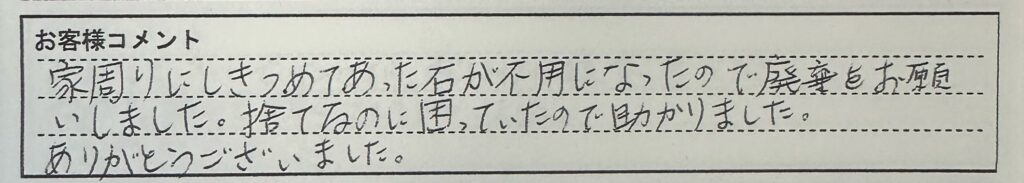 お客様コメント
家周りにしきつめてあった石が不用になったので廃棄をお願
いしました。捨てるのに困っていたので助かりました。
ありがとうございました。